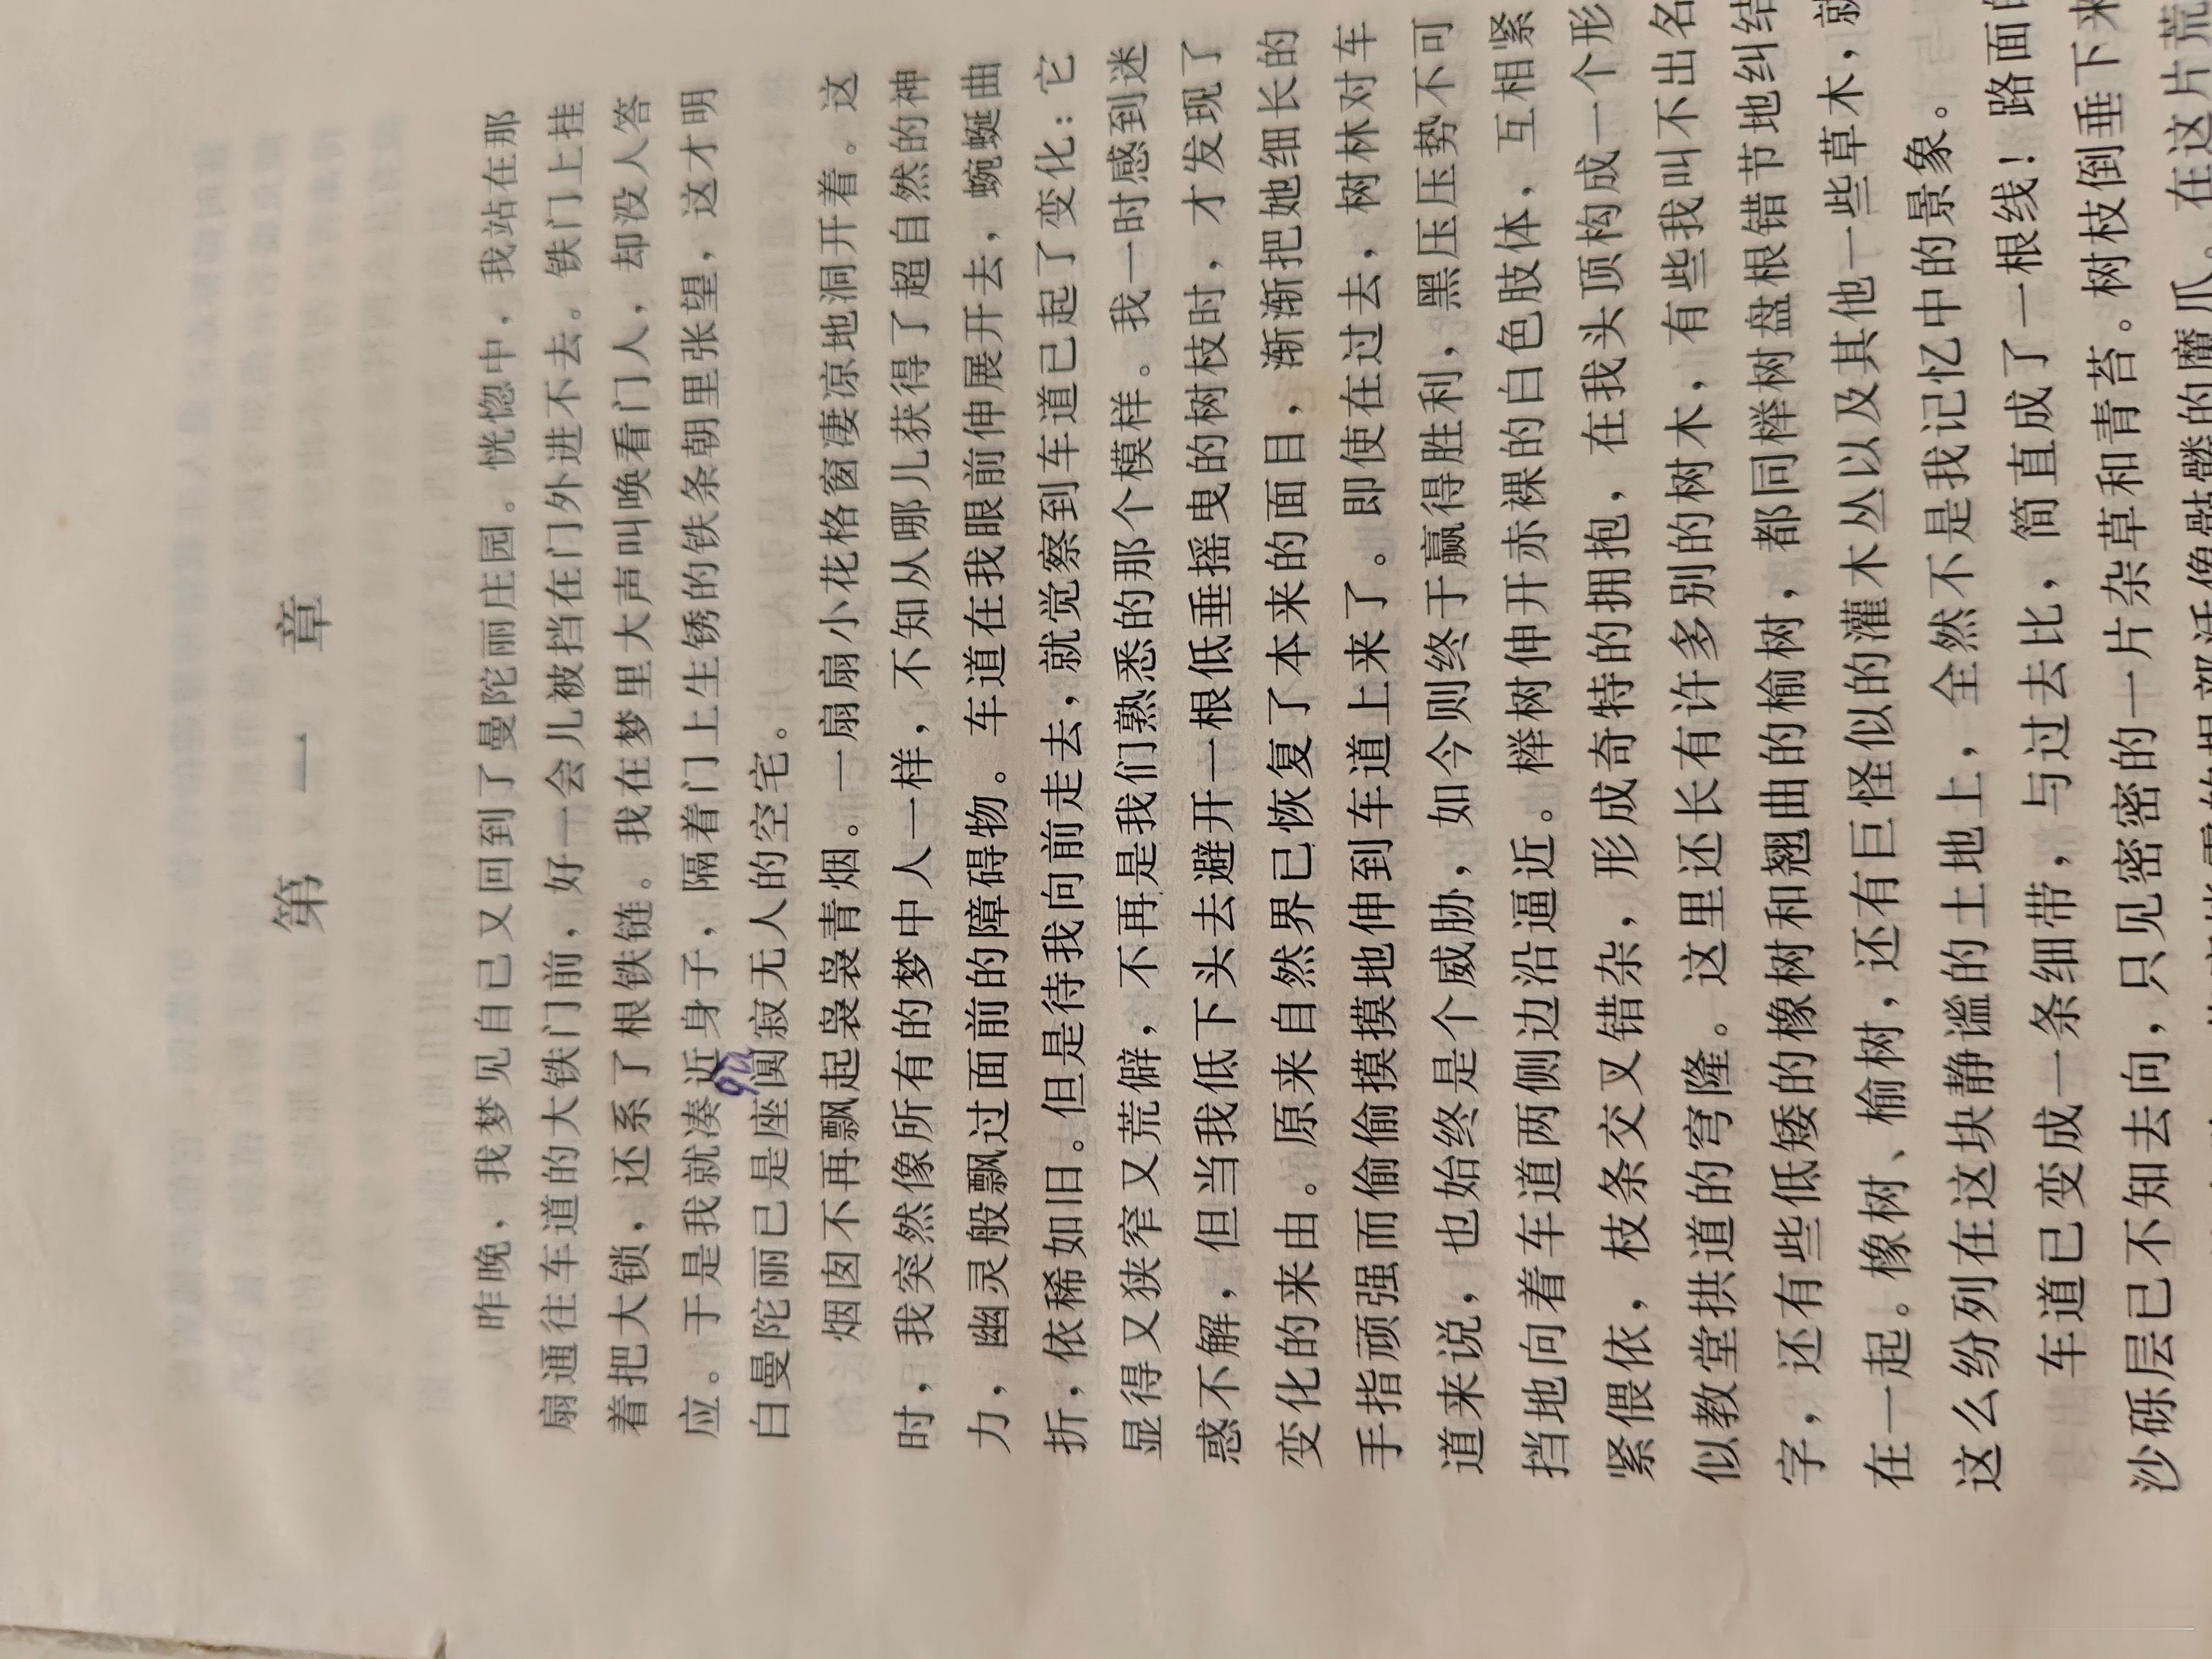 第一章
昨晚，我梦见自己又回到了曼陀丽庄园。恍惚中，我站在那
扇通往车道的大铁门前，好一会儿被挡在门外进不去。铁门上挂
着把大锁，还系了根铁链。我在梦里大声叫唤看门人，却没人答
应。于是我就凑近身子，隔着门上生锈的铁条朝里张望，这才明
qu
白曼陀丽已是座阒寂无人的空宅。
烟囱不再飘起袅袅青烟。一扇扇小花格窗凄凉地洞开着。这
时，我突然像所有的梦中人一样，不知从哪儿获得了超自然的神
力，幽灵般飘过面前的障碍物。车道在我眼前伸展开去，蜿蜒曲
折，依稀如旧。但是待我向前走去，就觉察到车道已起了变化：它
显得又狭窄又荒僻，不再是我们熟悉的那个模样。我一时感到迷
惑不解，但当我低下头去避开一根低垂摇曳的树枝时，才发现了
变化的来由。原来自然界已恢复了本来的面目，渐渐把她细长的
手指顽强而偷偷摸摸地伸到车道上来了。即使在过去，树林对车
道来说，也始终是个威胁，如今则终于赢得胜利，黑压压势不可
挡地向着车道两侧边沿逼近。榉树伸开赤裸的白色肢体，互相紧
紧偎依，枝条交叉错杂，形成奇特的拥抱，在我头顶构成一个形
似教堂拱道的穹隆。这里还长有许多别的树木，有些我叫不出名
字，还有些低矮的橡树和翘曲的榆树，都同榉树盘根错节地纠结
在一起。橡树、榆树，还有巨怪似的灌木丛以及其他一些草木，就
这么纷列在这块静谧的土地上，全然不是我记忆中的景象。
车道已变成一条细带，与过去比，简直成了一根线！路面的
沙砾层已不知去向，只见密密的一片杂草和青苔。树枝倒垂下来
活像骷髅的魔爪。在这片荒